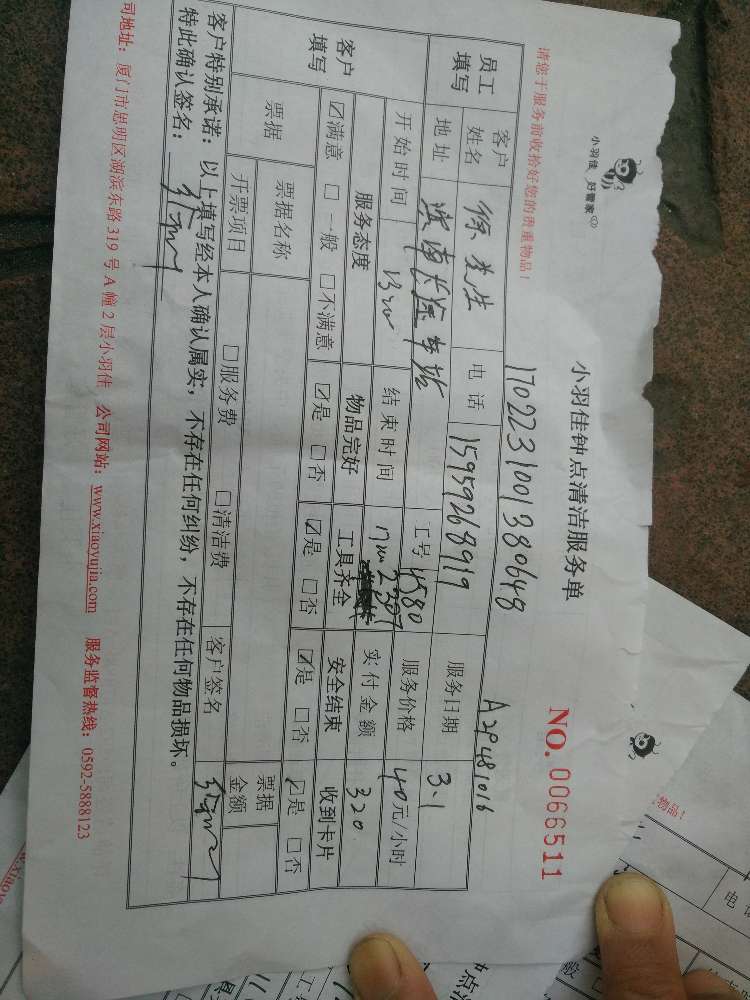 小羽佳 好管家
小羽佳钟点清洁服务单
NO. 0066511
请您于服务前收拾好您的贵重物品!
1702231001380648
A2P481016
员工填写 客户姓名 徐先生 电话 15959268919 服务日期 3.1
地址 滨海长途车站 工号 服务价格 40元/小时
开始时间 结束时间 实付金额 320
客户填写 服务态度 物品完好 工具齐全 安全结束 收到卡片
☑满意 □一般 □不满意 ☑是 □否 ☑是 □否 ☑是 □否 ☑是 □否
票据 票据名称 票据金额
开票项目 □服务费 □清洁费 客户签名
客户特别承诺:以上填写经本人确认属实,不存在任何纠纷,不存在任何物品损坏。
特此确认签名:
司地址:厦门市思明区湖滨东路319号A幢2层小羽佳 公司网站:www.xiaoyujia.com 服务监督热线:0592-5888123
物品!